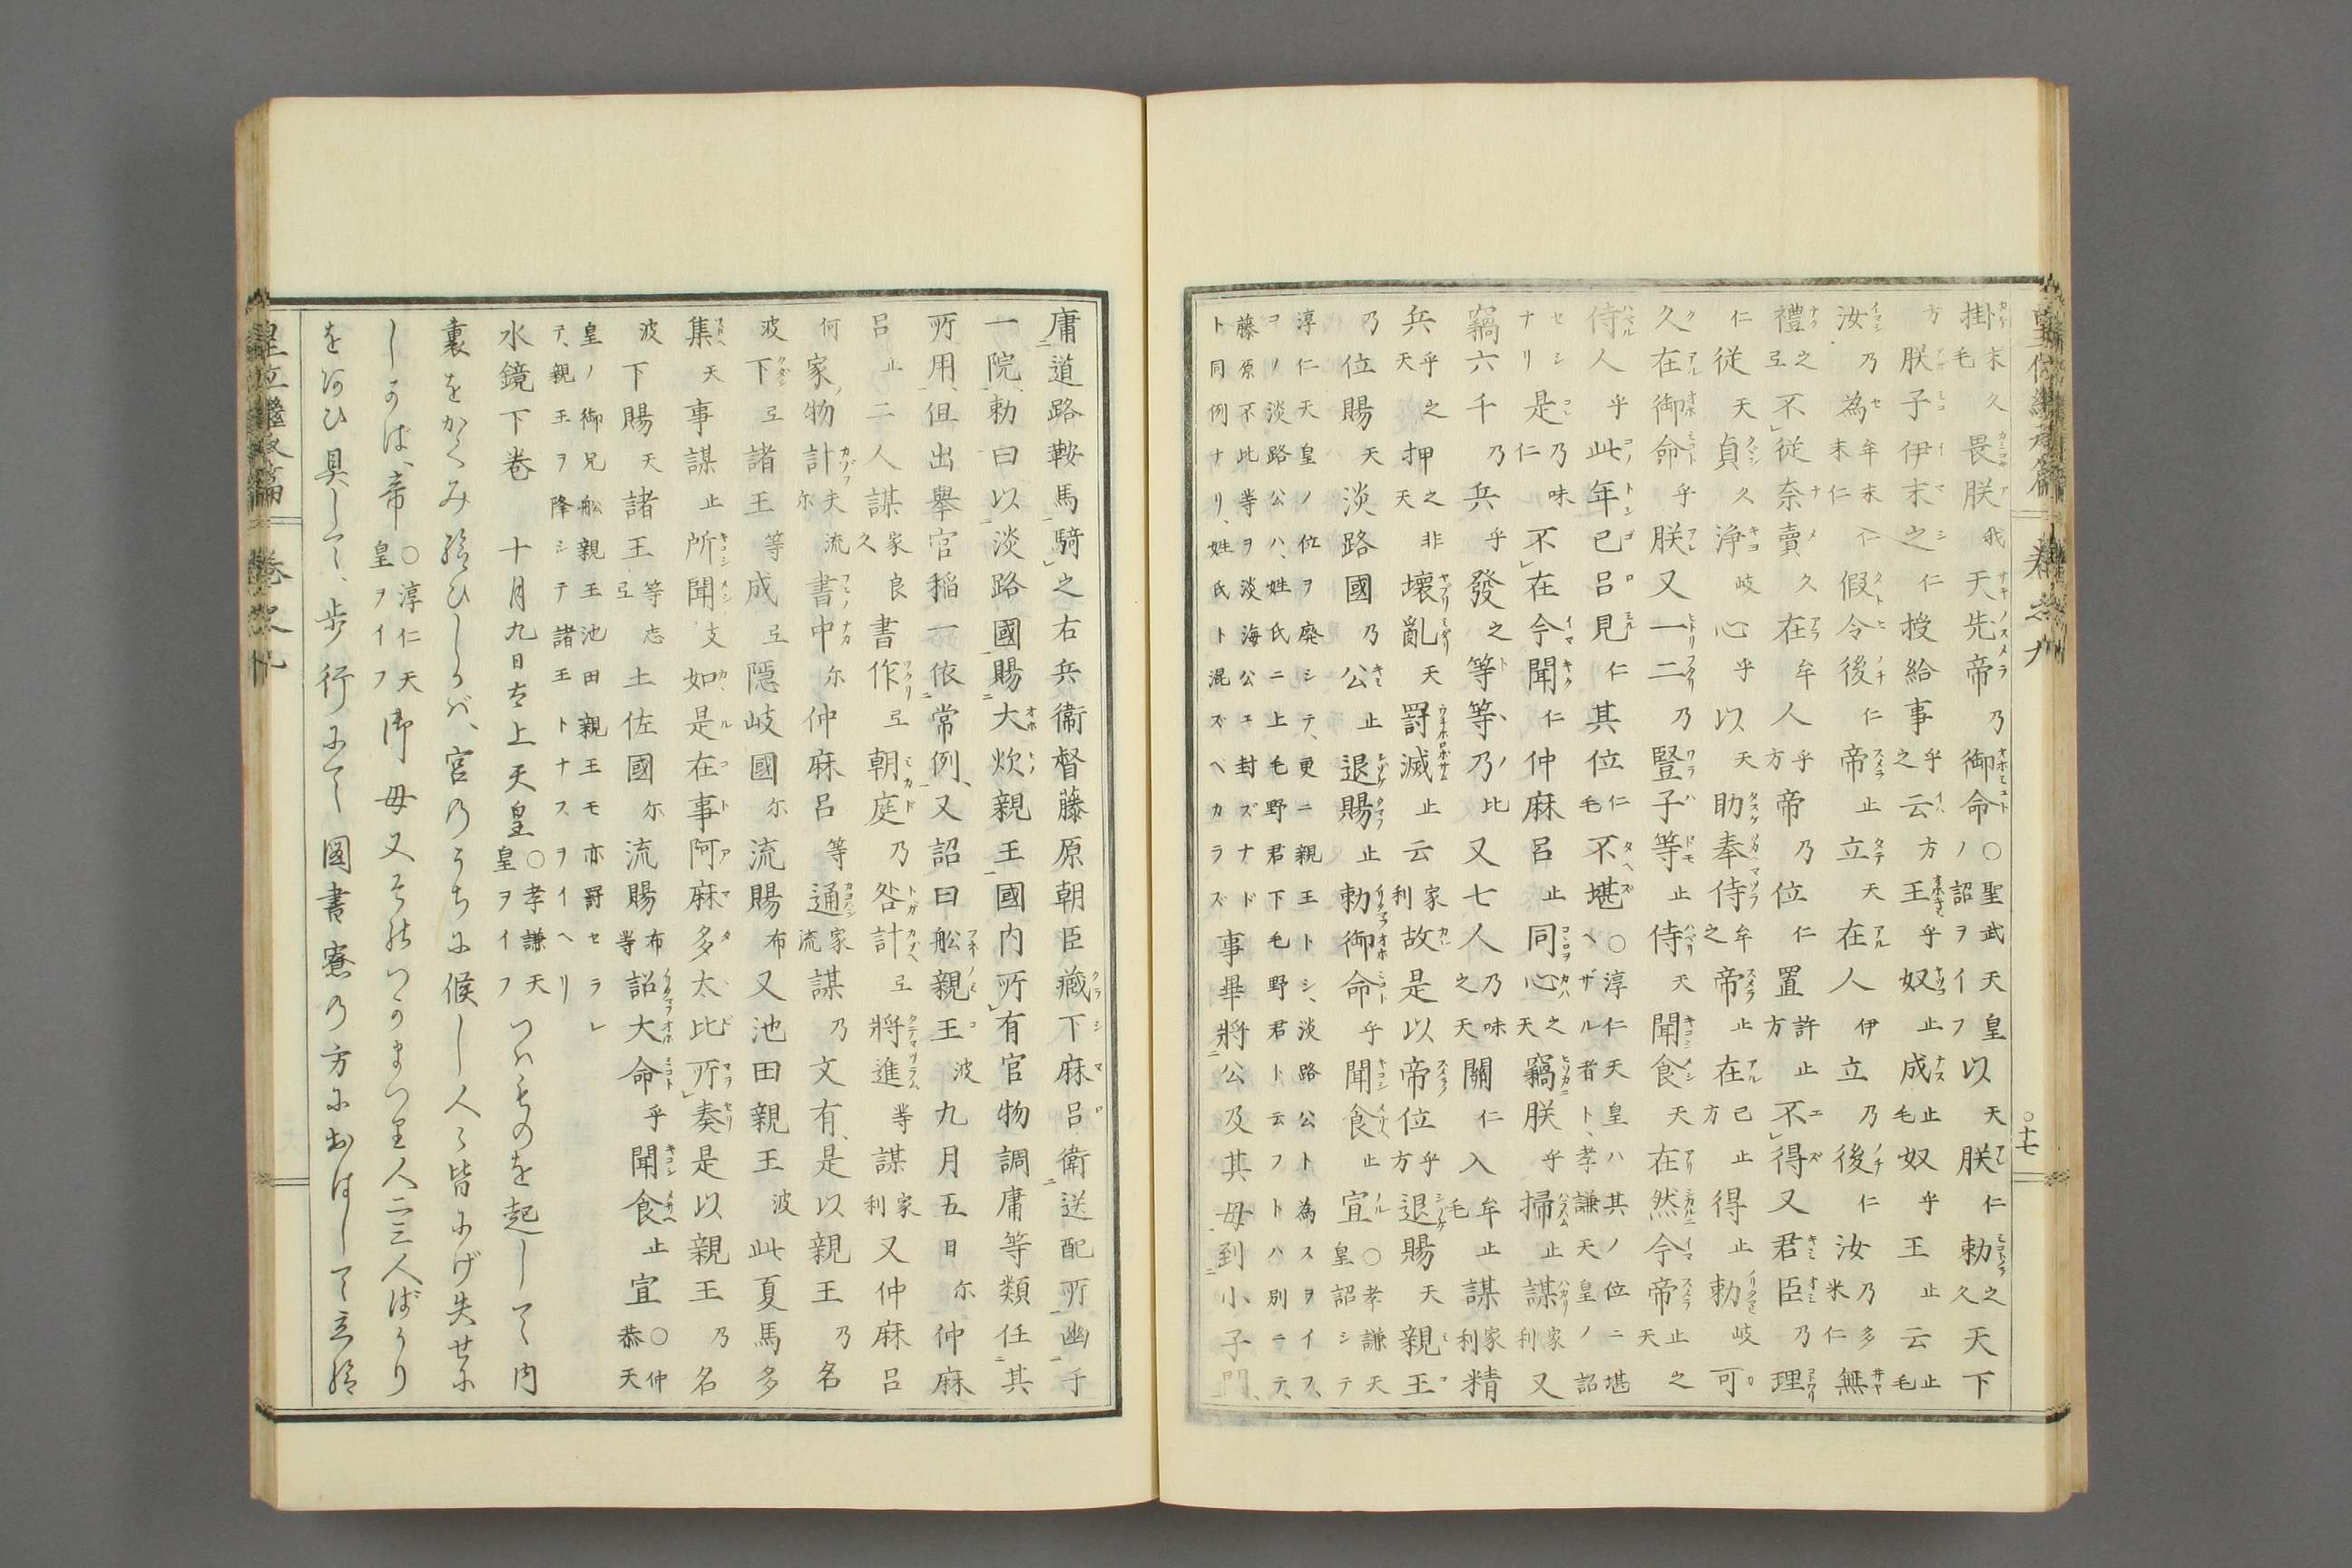 皇位継承篇 巻之九 ○十七
掛末久毛畏朕我天先帝乃御命ノ○聖武天皇詔ヲイフ以天朕仁勅之久天下
方朕子伊末之仁授給事乎之云方王乎奴止成止毛奴乎王止云止毛
汝乃為牟末末仁仁假令後仁帝止立天在人伊立乃後仁汝乃多米仁無
禮之弖不従奈賣久在牟人乎方帝乃位仁置許止方不得又君臣乃理
仁従天貞久浄岐心乎以天助奉侍牟之帝止在己止方得止勅岐可
久在御命乎朕又一二乃竪子等止侍天聞食天在然今帝止之天
侍人乎此年己呂見仁其位仁毛不堪○淳仁天皇ハ其ノ位ニ堪ヘザル者ト、孝謙天皇ノ詔
セシナリ是乃味仁不在今聞仁仲麻呂止同心之天竊朕乎掃止謀家利又
竊六千乃兵乎發之等等乃比又七人乃味之天關仁入牟止毛謀家利精
兵乎天押之非天壊亂天罸滅止云家利故是以帝位乎方退賜天親王
乃位賜天淡路國乃公止退賜止勅御命乎聞食止宣○孝謙天皇詔シテ
淳仁天皇ノ位ヲ廃シテ、更ニ親王トシ、淡路公ト為スヲイフ、
コノ淡路公ハ、姓氏ニ上毛野君下毛野君ト云フトハ別ニテ、
藤原不比等ヲ淡海公ニ封ズナド
ト同例ナリ、姓氏ト混ズベカラズ事畢將公及其母到小子門、
庸道路鞍馬騎之右兵衞督藤原朝臣藏下麻呂衞送配所幽于
一院、勅曰以淡路國賜大炊親王國内所有官物調庸等類任其
所用、但出擧官稲一依常例、又詔曰舩親王波九月五日尓仲麻
呂止二人謀家良久書作弖朝庭乃咎計弖將進等謀家利又仲麻呂
何家物計夫流尓書中尓仲麻呂等通家流謀乃文有、是以親王乃名
波下弖諸王等成弖隠岐國尓流賜布又池田親王波此夏馬多
集天事謀止所聞支如是在事阿麻多太比所奏是以親王乃名
波下賜天諸王等弖志土佐國尓流賜布等詔大命乎聞食止宣○仲恭天
皇ノ御兄舩親王池田親王モ亦罸セラレ
テ、親王ヲ降シテ諸王トナスヲイヘリ
水鏡下巻 十月九日太上天皇○孝謙天皇ヲイフつはものを起して内
裏をかくみ給ひしかば、宮のうちに候し人々皆にげ失せに
しかば、帝○淳仁天皇ヲイフ御母又そのつかまつり人二三人ばかり
をあひ具して、歩行にて圖書寮の方におはして立給
皇位繼承篇 巻之九